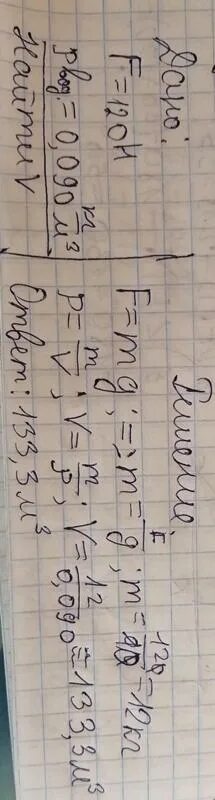 Дано:
F=120Н
ρвод.=0,090 кг/м³
Найти V
Решение
F=mg; => m=F/g; m=120/10=12кг
ρ=m/V; V=m/ρ; V=12/0,090=133,3м³
Ответ: 133,3м³